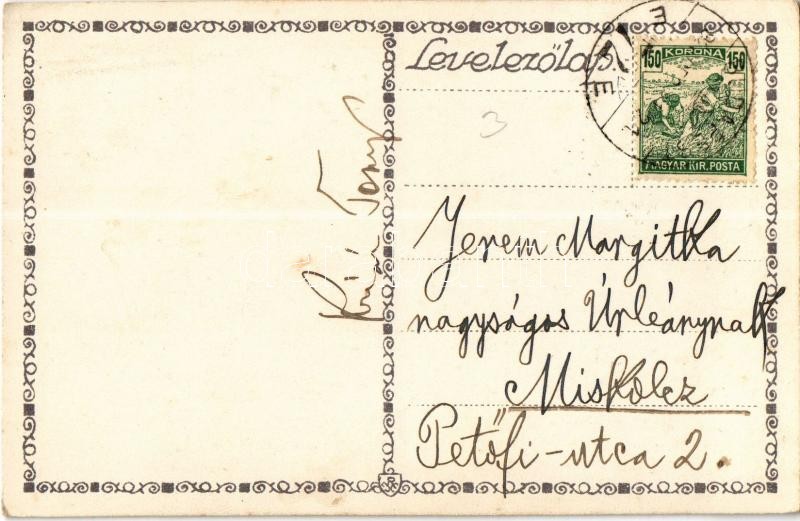 Levelezőlap.
150 KORONA 150
MAGYAR KIR. POSTA
3
Jerem Margitka
nagyságos Úrleánynak
Miskolcz
Petőfi-utca 2.